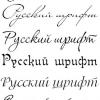 Русский шрифт
Русский шрифт
Русский шрифт
Русский шрифт
Русский шрифт